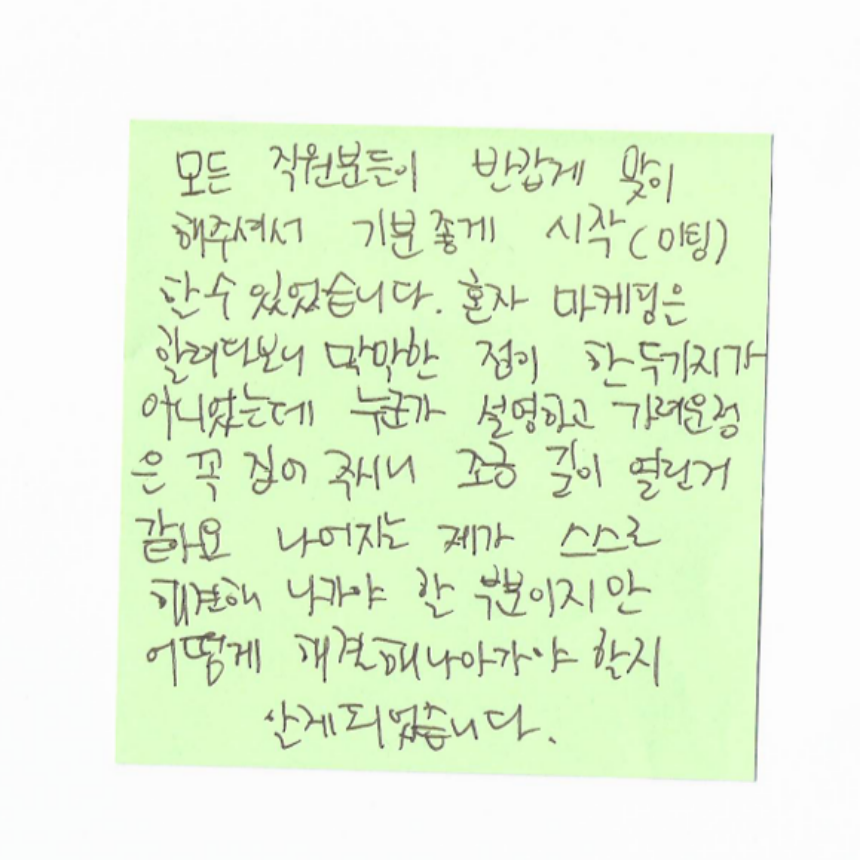 모든 직원분들이 반갑게 맞이
해주셔서 기분좋게 시작(미팅)
할 수 있었습니다. 혼자 마케팅은
할려다보니 막막한 점이 한두가지가
아니었는데 누군가 설명하고 가려운점
은 꼭 집어 주시니 조금 길이 열린거
같아요 나머지는 제가 스스로
해결해 나가야 할 부분이지만
어떻게 해결해나아가야 할지
알게되었습니다.